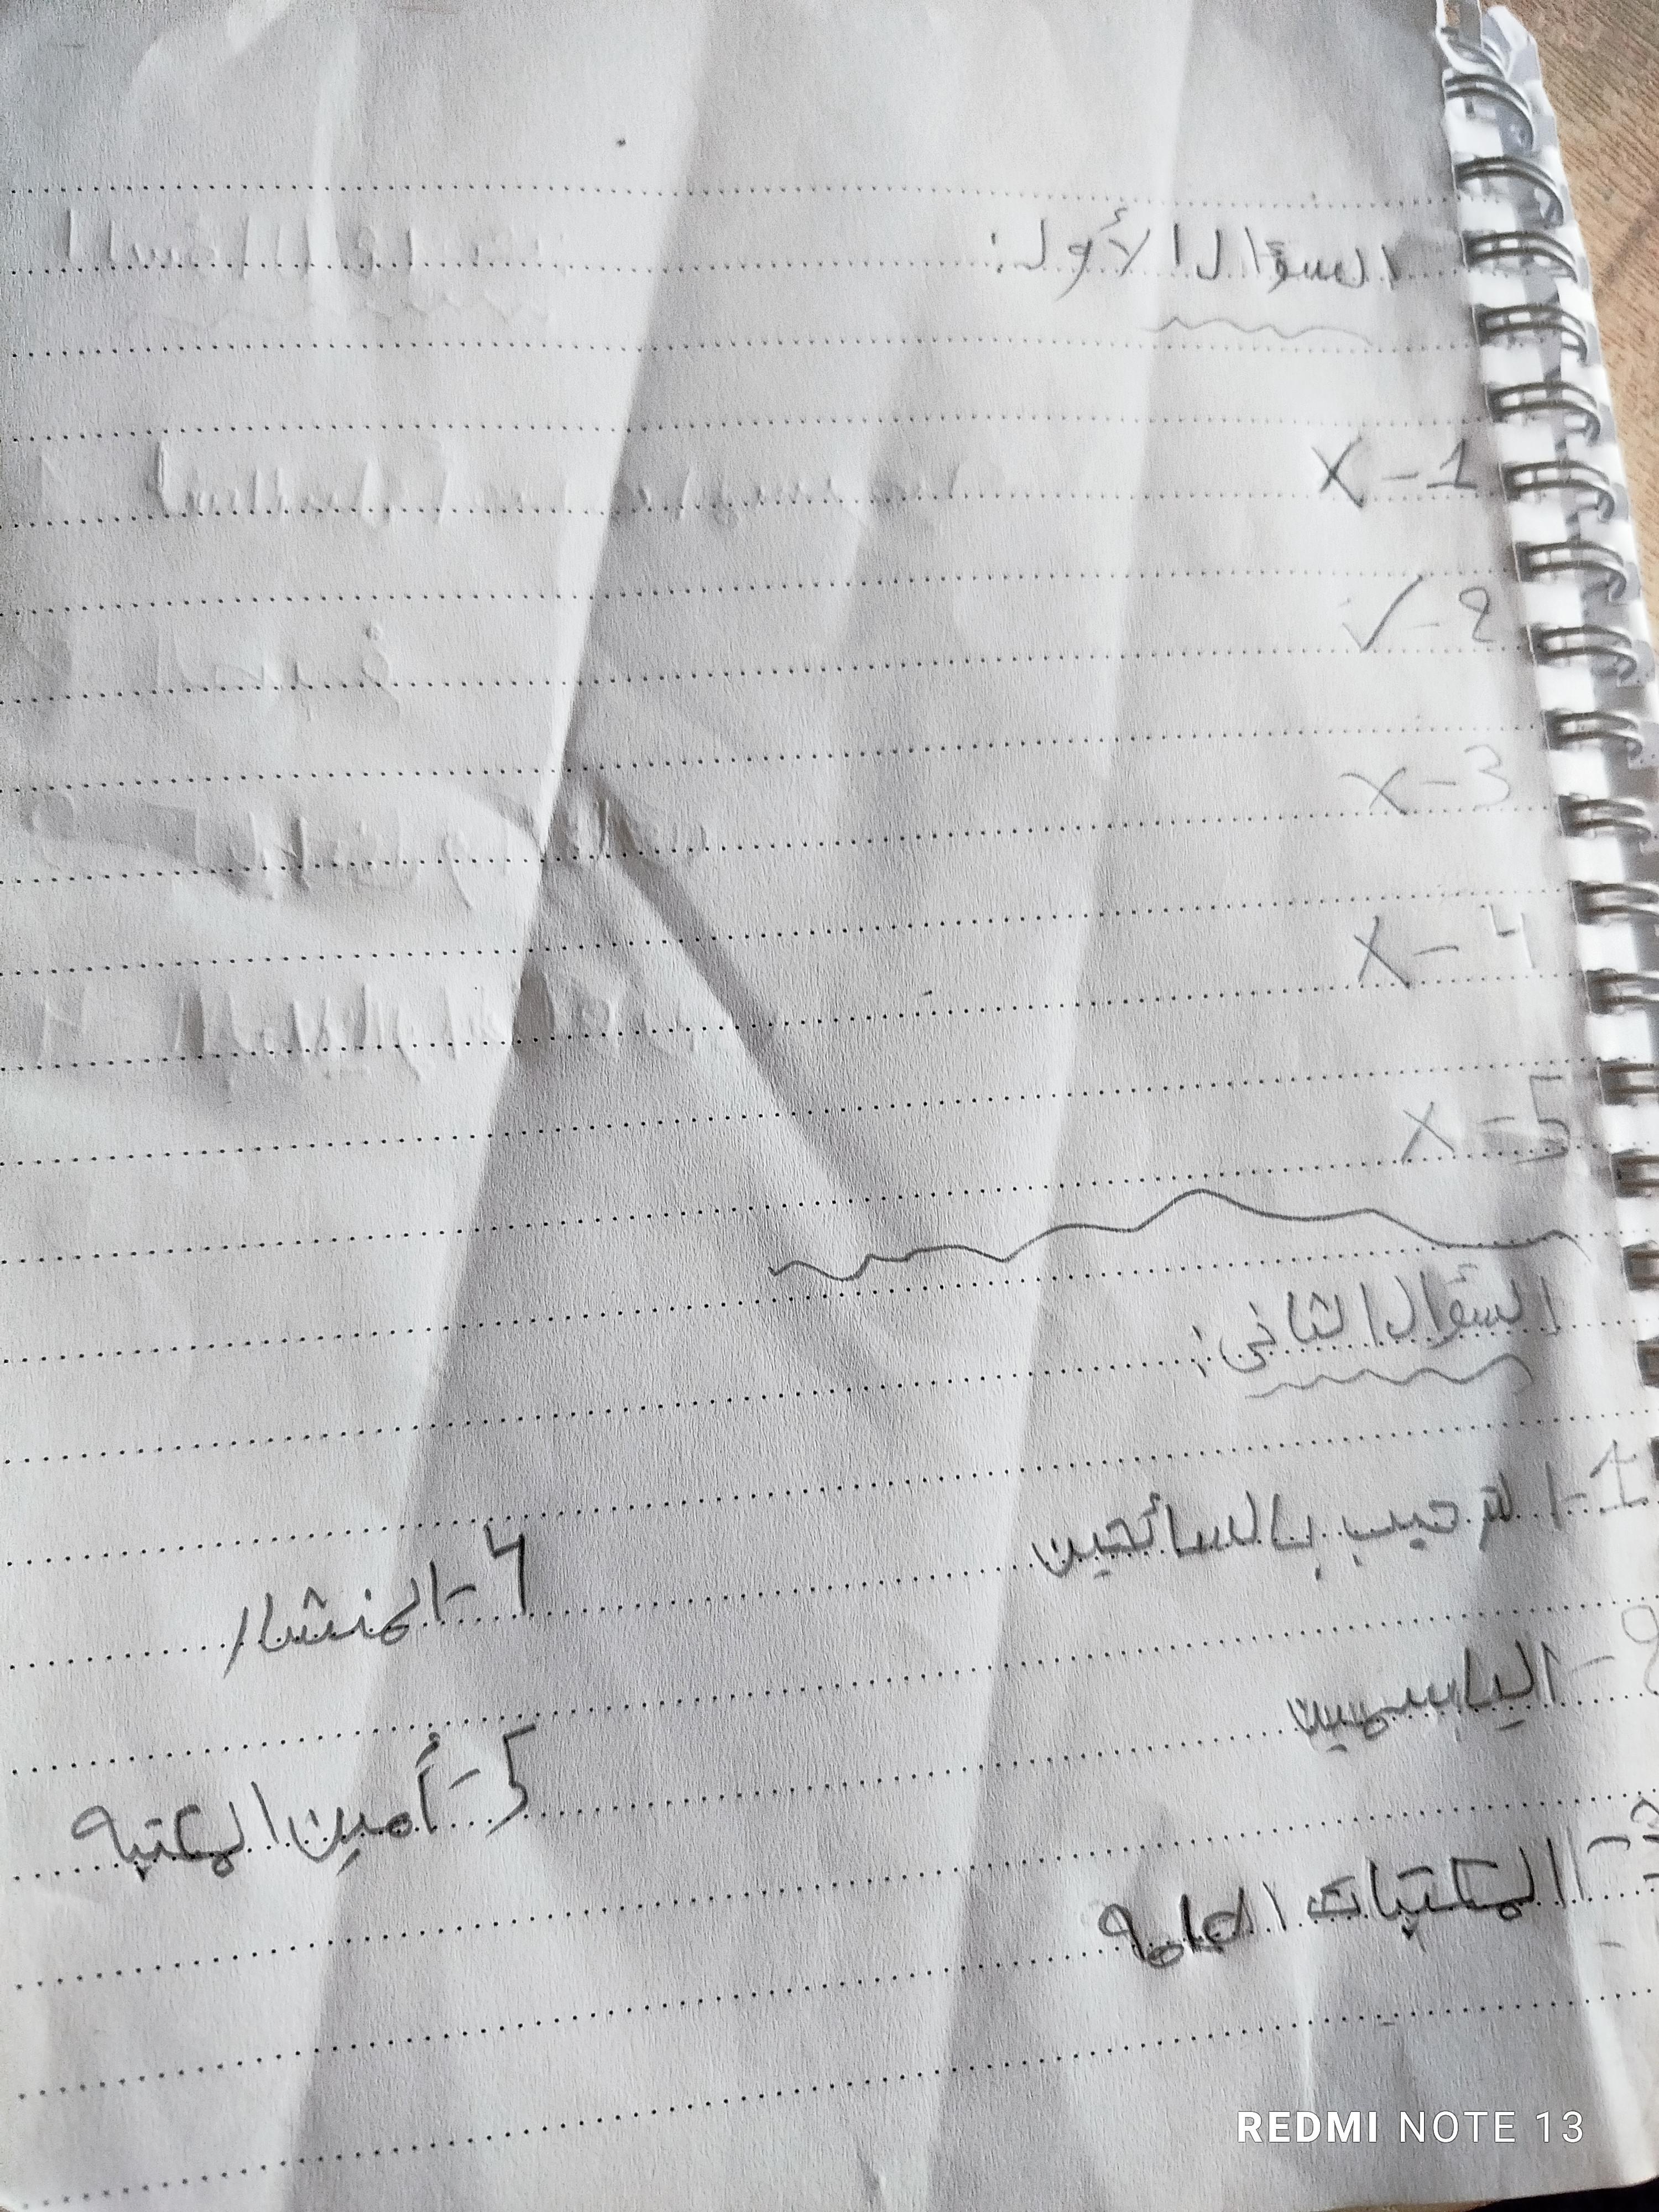 السؤال الأول:
1- X
2- ✓
3- X
4- X
5- X
السؤال الثانى:
1- الترحيب بالسائحين
2- الياسمين
3- المكتبات العامه
4- المنشار
5- أمين المكتبه
REDMI NOTE 13